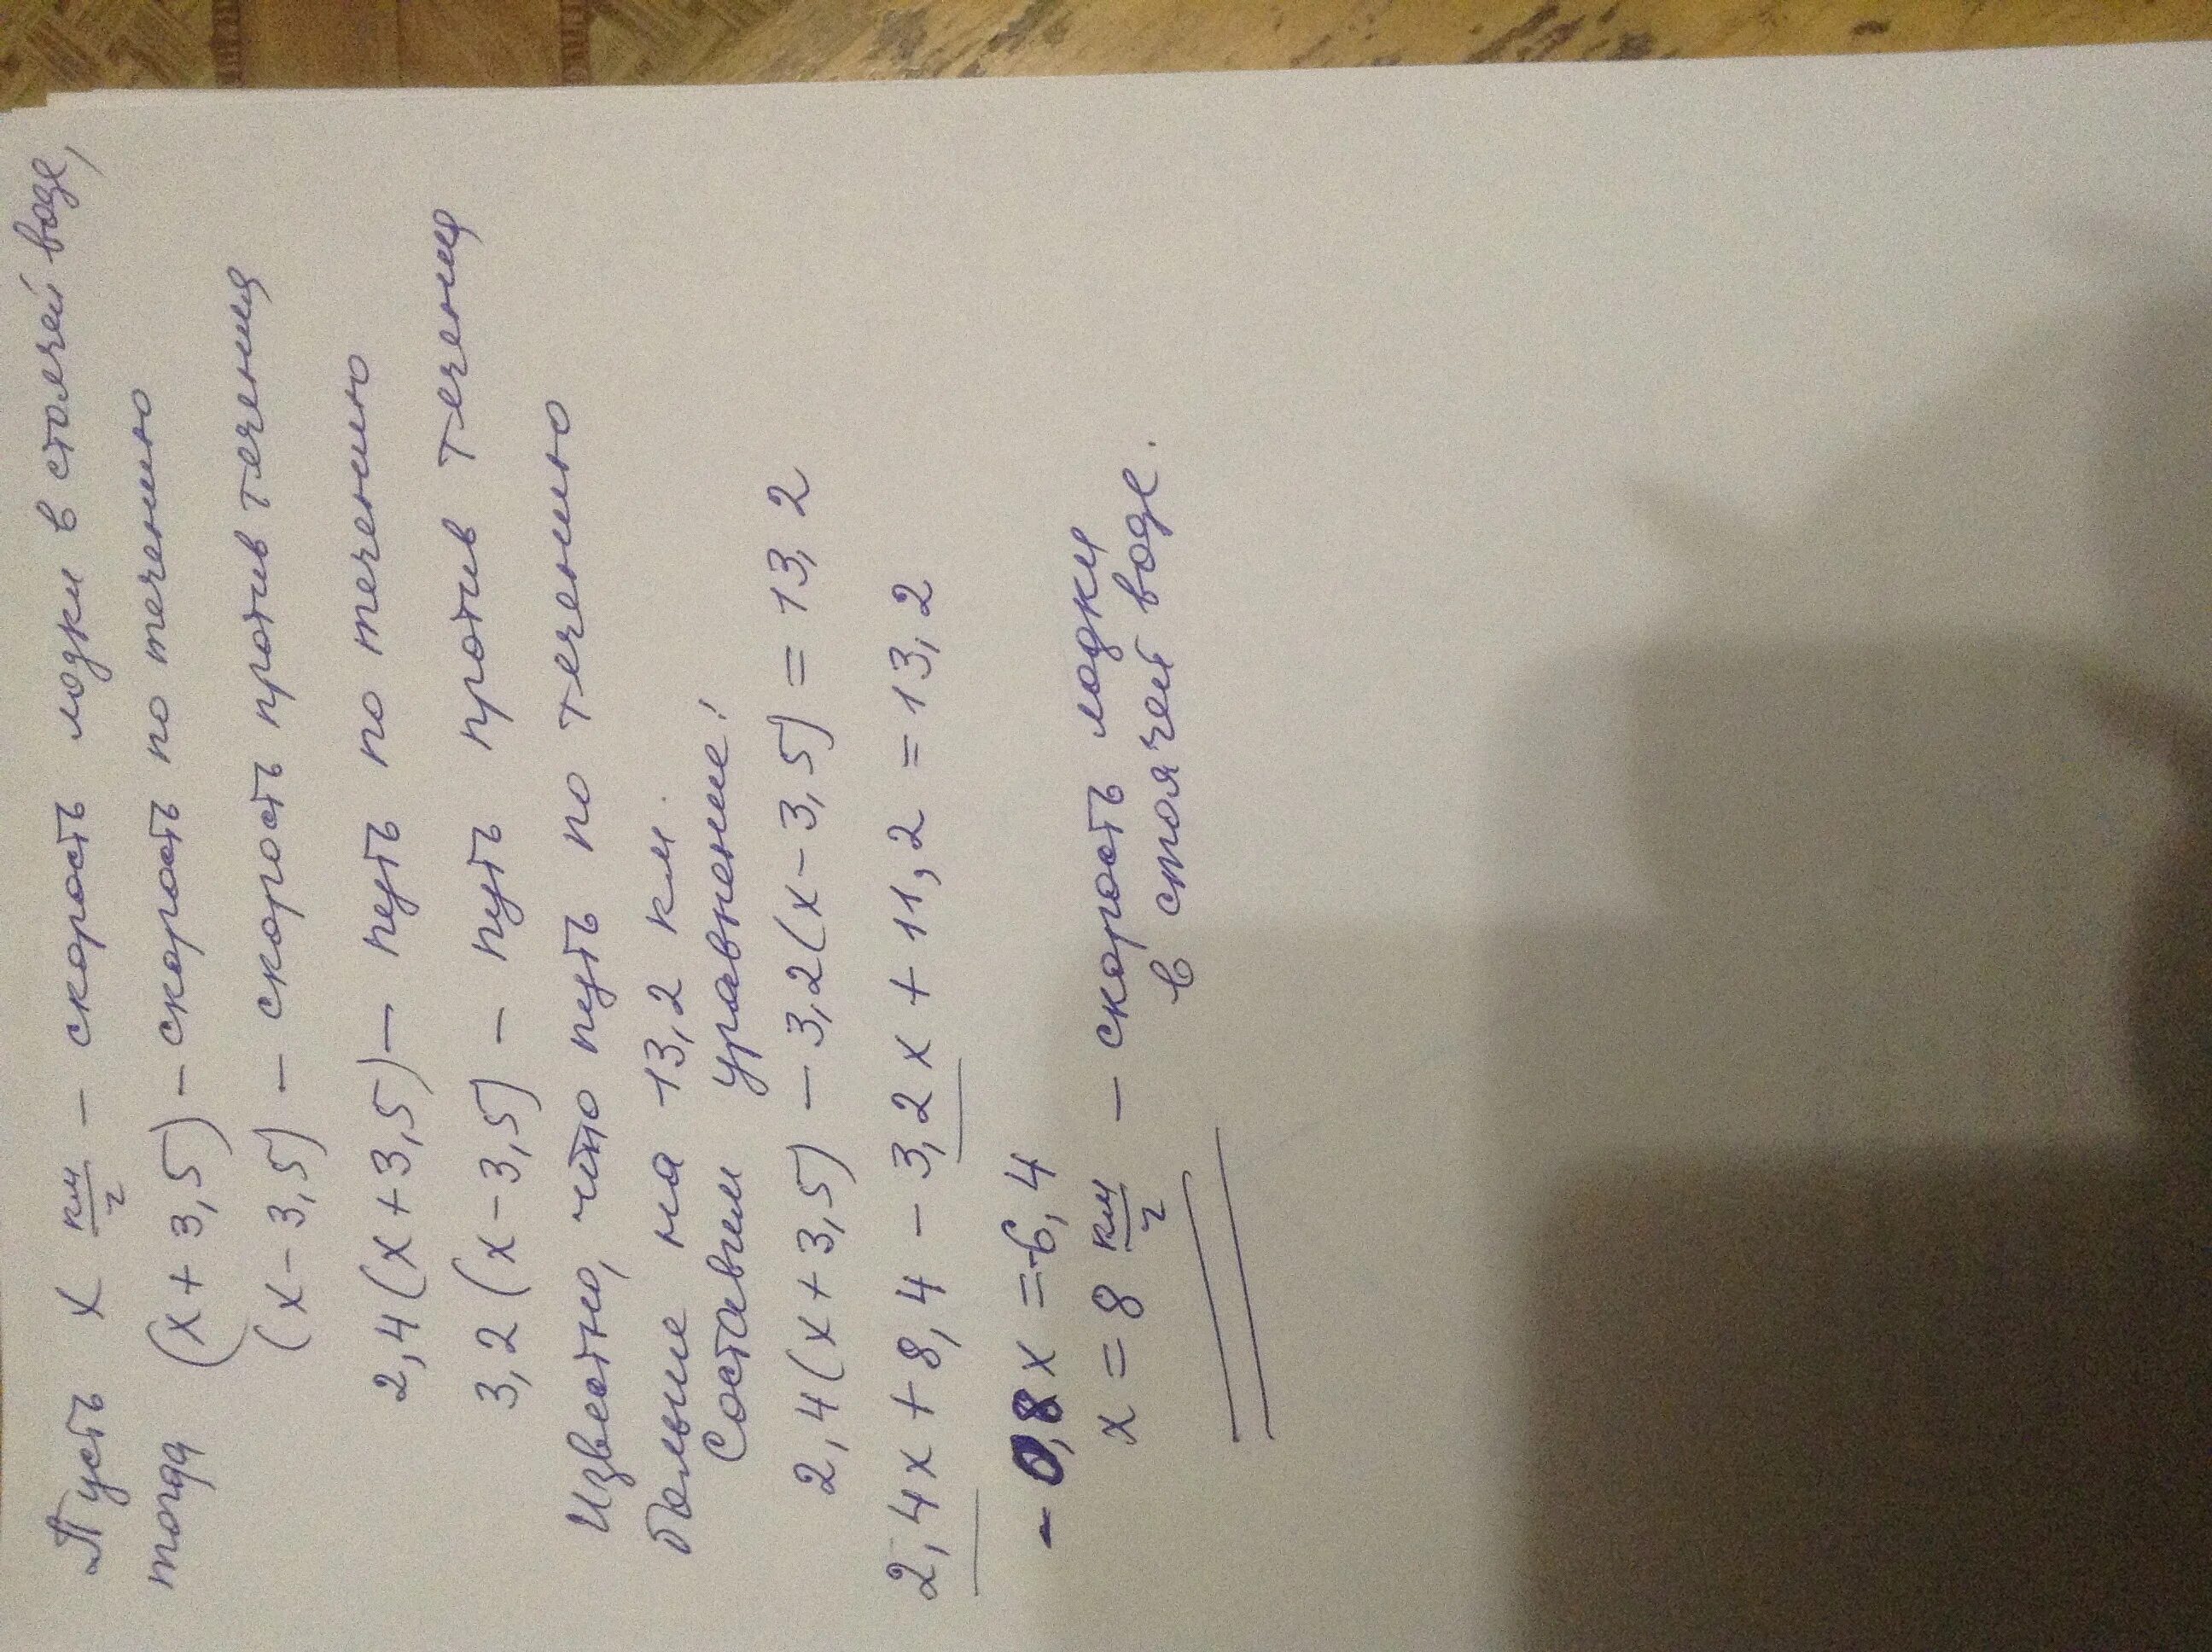 Пусть x км/ч – скорость лодки в стоячей воде,
тогда (x + 3,5) – скорость по течению
(x – 3,5) – скорость против течения
2,4 (x + 3,5) – путь по течению
3,2 (x – 3,5) – путь против течения
Известно, что путь по течению
больше на 13,2 км.
Составим уравнение:
2,4 (x + 3,5) – 3,2 (x – 3,5) = 13,2
2,4x + 8,4 – 3,2x + 11,2 = 13,2
– 0,8x = -6,4
x = 8 км/ч – скорость лодки
в стоячей воде.